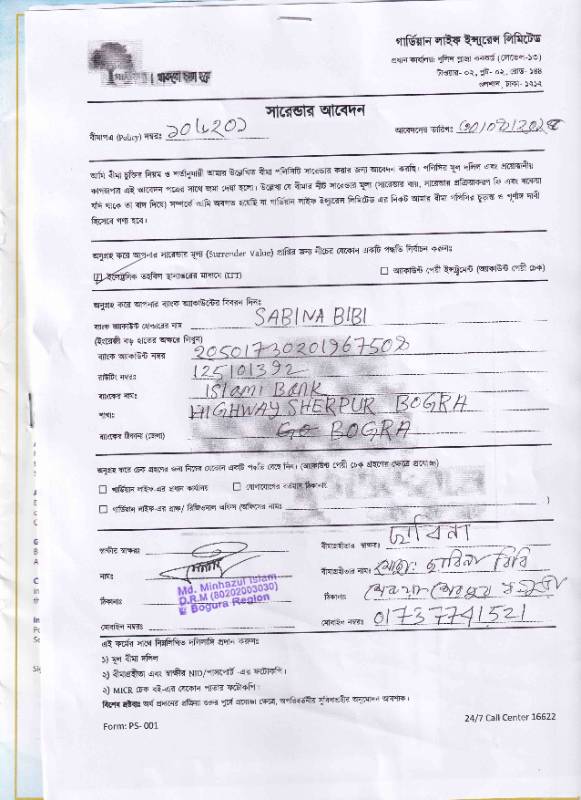 গার্ডিয়ান লাইফ ইন্স্যুরেন্স লিমিটেড
প্রধান কার্যালয়: পুলিশ প্লাজা কনকর্ড (লেভেল-১৩)
টাওয়ার- ০২, প্লট- ০২, রোড- ১৪৪
গুলশান, ঢাকা- ১২১২
সারেন্ডার আবেদন
বীমাপত্র (Policy) নম্বরঃ
আবেদনের তারিখঃ
আমি বীমা চুক্তির নিয়ম ও শর্তানুযায়ী আমার উল্লেখিত বীমা পলিসিটি সারেন্ডার করার জন্য আবেদন করছি। পলিসির মূল দলিল এবং প্রয়োজনীয়
কাগজপত্র এই আবেদন পত্রের সাথে জমা দেয়া হলো। উল্লেখ্য যে বীমার নীট সারেন্ডার মূল্য (সারেন্ডার ব্যয়, সারেন্ডার প্রক্রিয়াকরণ ফি এবং বকেয়া
যদি থাকে তা বাদ দিয়ে) সম্পর্কে আমি অবগত হয়েছি যা গার্ডিয়ান লাইফ ইন্স্যুরেন্স লিমিটেড এর নিকট আমার বীমা পলিসির চূড়ান্ত ও পূর্ণাঙ্গ দাবী
হিসেবে গণ্য হবে।
অনুগ্রহ করে আপনার সারেন্ডার মূল্য (Surrender Value) প্রাপ্তির জন্য নীচের যেকোন একটি পদ্ধতি নির্বাচন করুনঃ
ইলেক্ট্রনিক তহবিল স্থানান্তরের মাধ্যমে (EFT)
অ্যাকাউন্ট পেয়ী ইন্সট্রুমেন্ট (অ্যাকাউন্ট পেয়ী চেক)
অনুগ্রহ করে আপনার ব্যাংক অ্যাকাউন্টের বিবরন দিনঃ
ব্যাংক অ্যাকাউন্ট হোল্ডারের নাম SABINA BIBI
(ইংরেজী বড় হাতের অক্ষরে লিখুন)
ব্যাংক অ্যাকাউন্ট নম্বর
রাউটিং নম্বরঃ 125101392
ব্যাংকের নামঃ Islami Bank
শাখাঃ HIGHWAY SHERPUR BOGRA
ব্যাংকের ঠিকানা (জেলা) BOGRA
অনুগ্রহ করে চেক গ্রহণের জন্য নিচের যেকোন একটি পদ্ধতি বেছে নিন। (অ্যাকাউন্ট পেয়ী চেক গ্রহণের ক্ষেত্রে প্রযোজ্য)
গার্ডিয়ান লাইফ-এর প্রধান কার্যালয়
যোগাযোগের বর্তমান ঠিকানায়
গার্ডিয়ান লাইফ-এর ব্রাঞ্চ/ রিজিওনাল অফিস (অফিসের নামঃ )
স্বাক্ষীর স্বাক্ষরঃ
বীমাগ্রহীতার স্বাক্ষরঃ ছাবিনা
নামঃ
বীমাগ্রহীতার নামঃ মোছাঃ ছাবিনা বিবি
Md. Minhazul Islam
D.R.M (80202003030)
Bogura Region
ঠিকানাঃ
ঠিকানাঃ
মোবাইল নম্বরঃ
মোবাইল নম্বরঃ 01737741521
এই ফর্মের সাথে নিম্নলিখিত দলিলাদি প্রদান করুনঃ
১) মূল বীমা দলিল
২) বীমাগ্রহীতা এবং স্বাক্ষীর NID/পাসপোর্ট -এর ফটোকপি।
২) MICR চেক বই-এর যেকোন পাতার ফটোকপি।
বিশেষ দ্রষ্টব্যঃ অর্থ প্রদানের প্রক্রিয়া শুরুর পূর্বে প্রযোজ্য ক্ষেত্রে, অপরিবর্তনীয় সুবিধাভোগীর অনুমোদন আবশ্যক।
Form: PS- 001
24/7 Call Center 16622